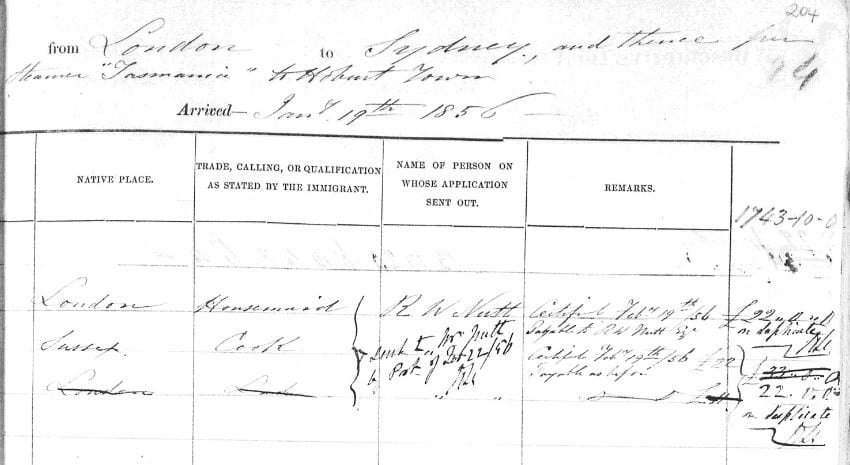 204
from London to Sydney, and thence per
Steamer "Tasmania" to Hobart Town
Arrived— Jany. 19th 1856
NATIVE PLACE.
TRADE, CALLING, OR QUALIFICATION
AS STATED BY THE IMMIGRANT.
NAME OF PERSON ON
WHOSE APPLICATION
SENT OUT.
REMARKS.
1743-10-0
London Housemaid R W Nutt Certifict Feby 19th/56 £22
Payable to R W Nutt Esqr on duplicate
Sussex Cook Mr Nutt
by Post Certifict Feby 19th/56 £22
Payable as before
London
22. 0. 0
on duplicate